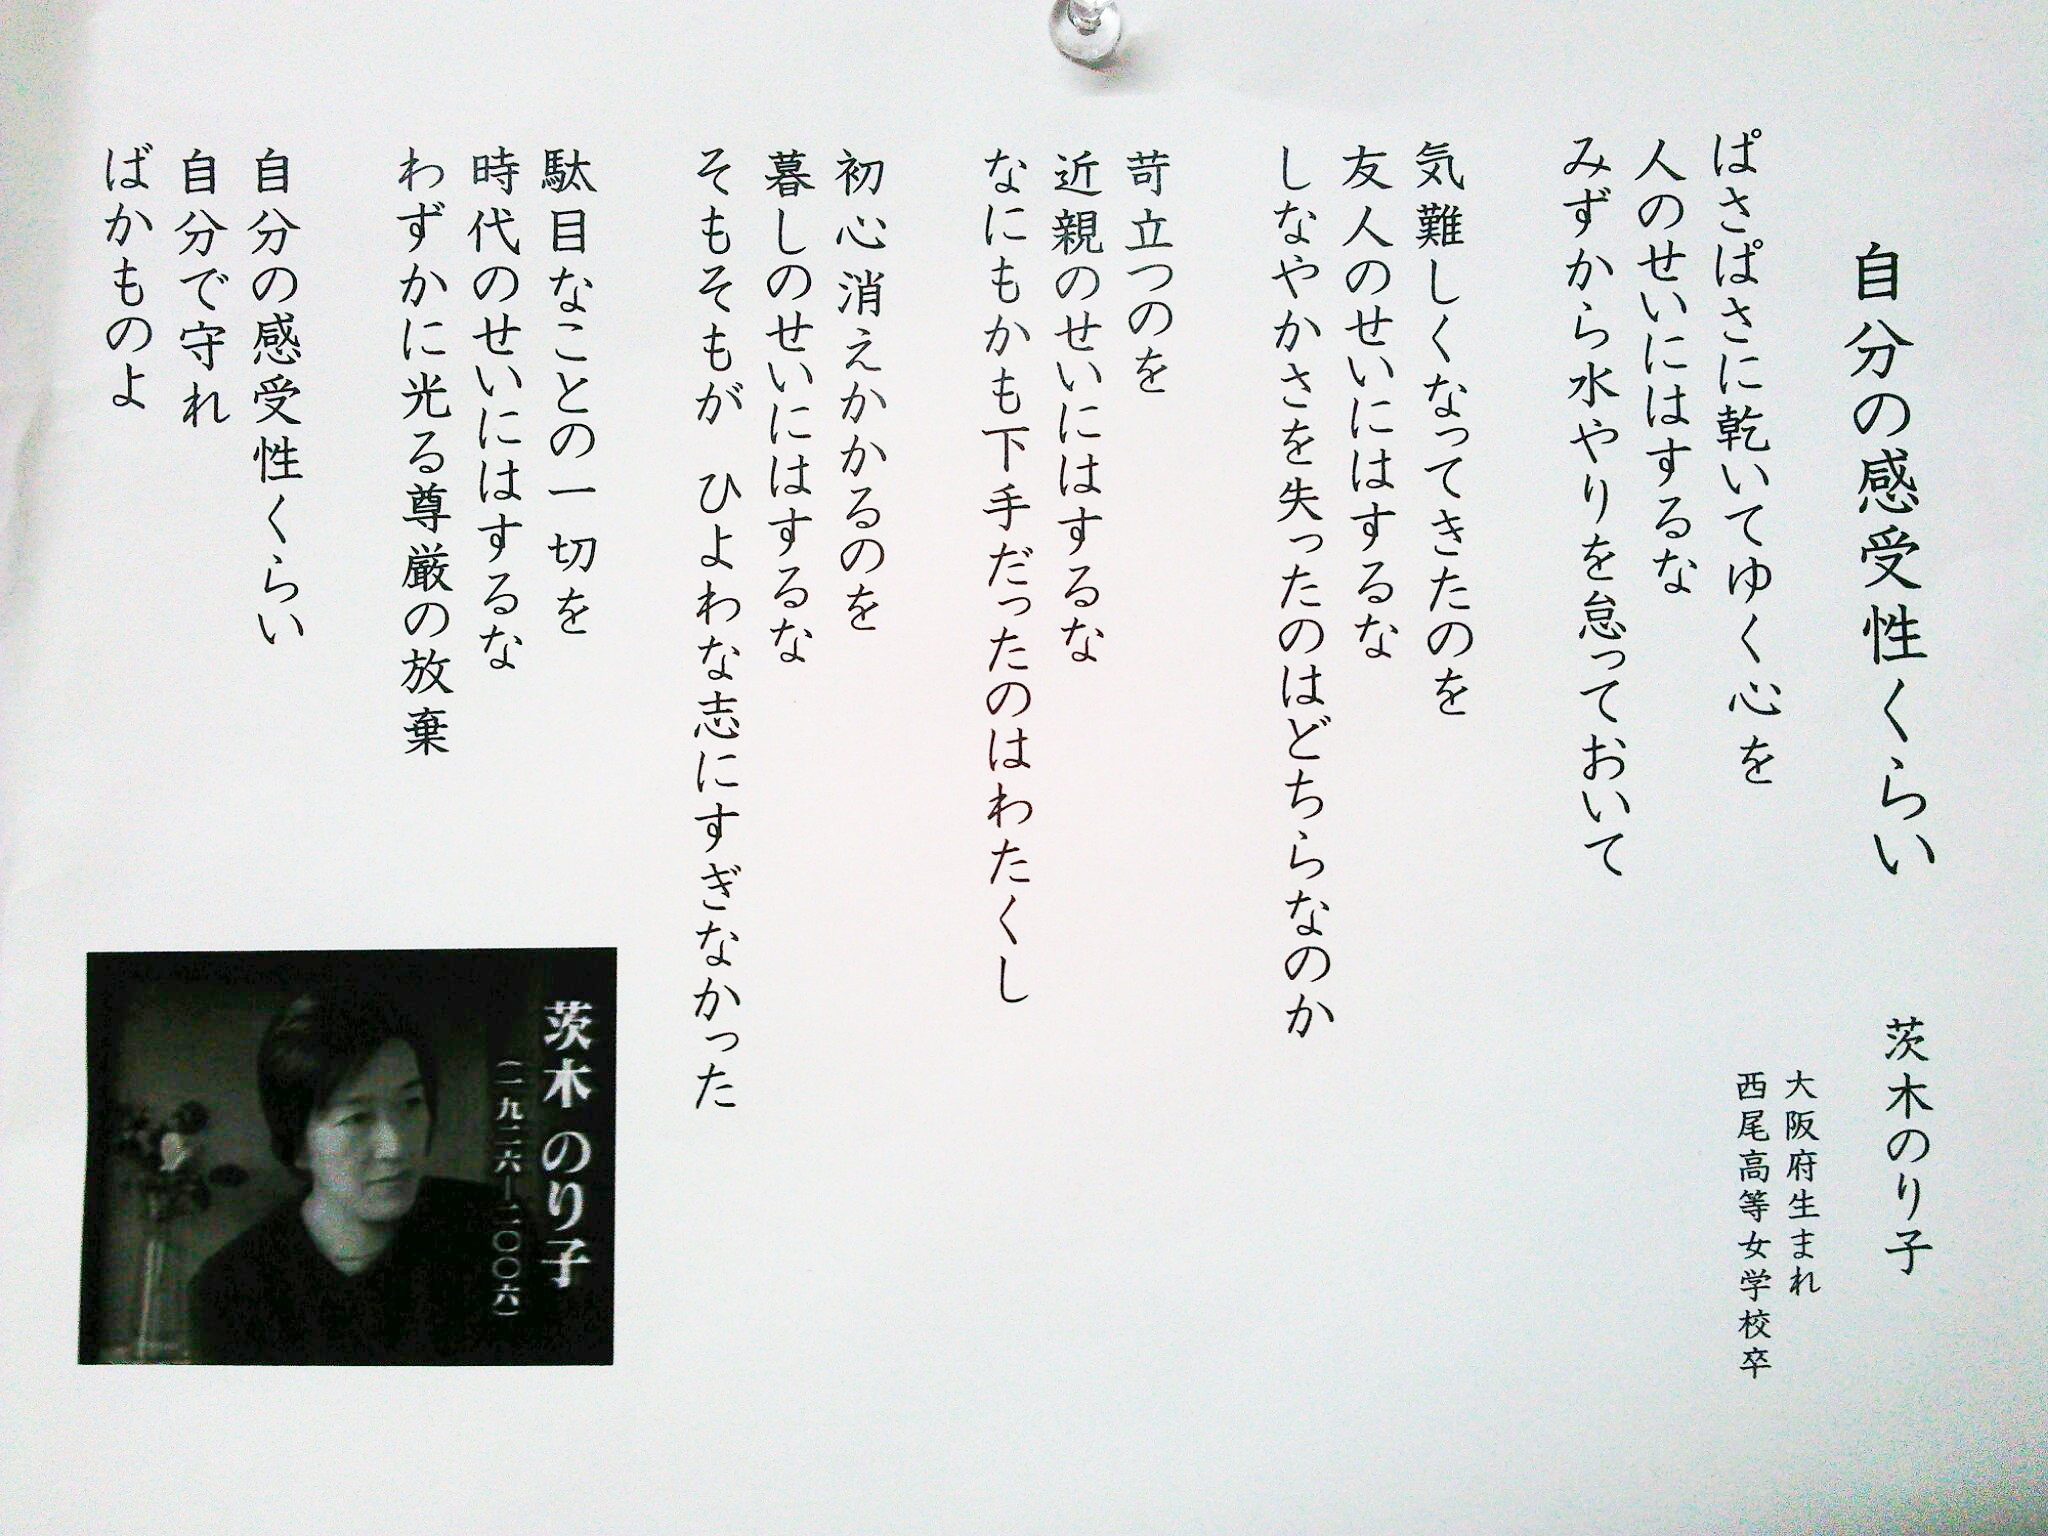 自分の感受性くらい
茨木のり子
大阪府生まれ
西尾高等女学校卒
ぱさぱさに乾いてゆく心を
人のせいにはするな
みずから水やりを怠っておいて
気難しくなってきたのを
友人のせいにはするな
しなやかさを失ったのはどちらなのか
苛立つのを
近親のせいにはするな
なにもかも下手だったのはわたくし
初心消えかかるのを
暮しのせいにはするな
そもそもが　ひよわな志にすぎなかった
駄目なことの一切を
時代のせいにはするな
わずかに光る尊厳の放棄
自分の感受性くらい
自分で守れ
ばかものよ
茨木のり子
(一九二六―二〇〇六)